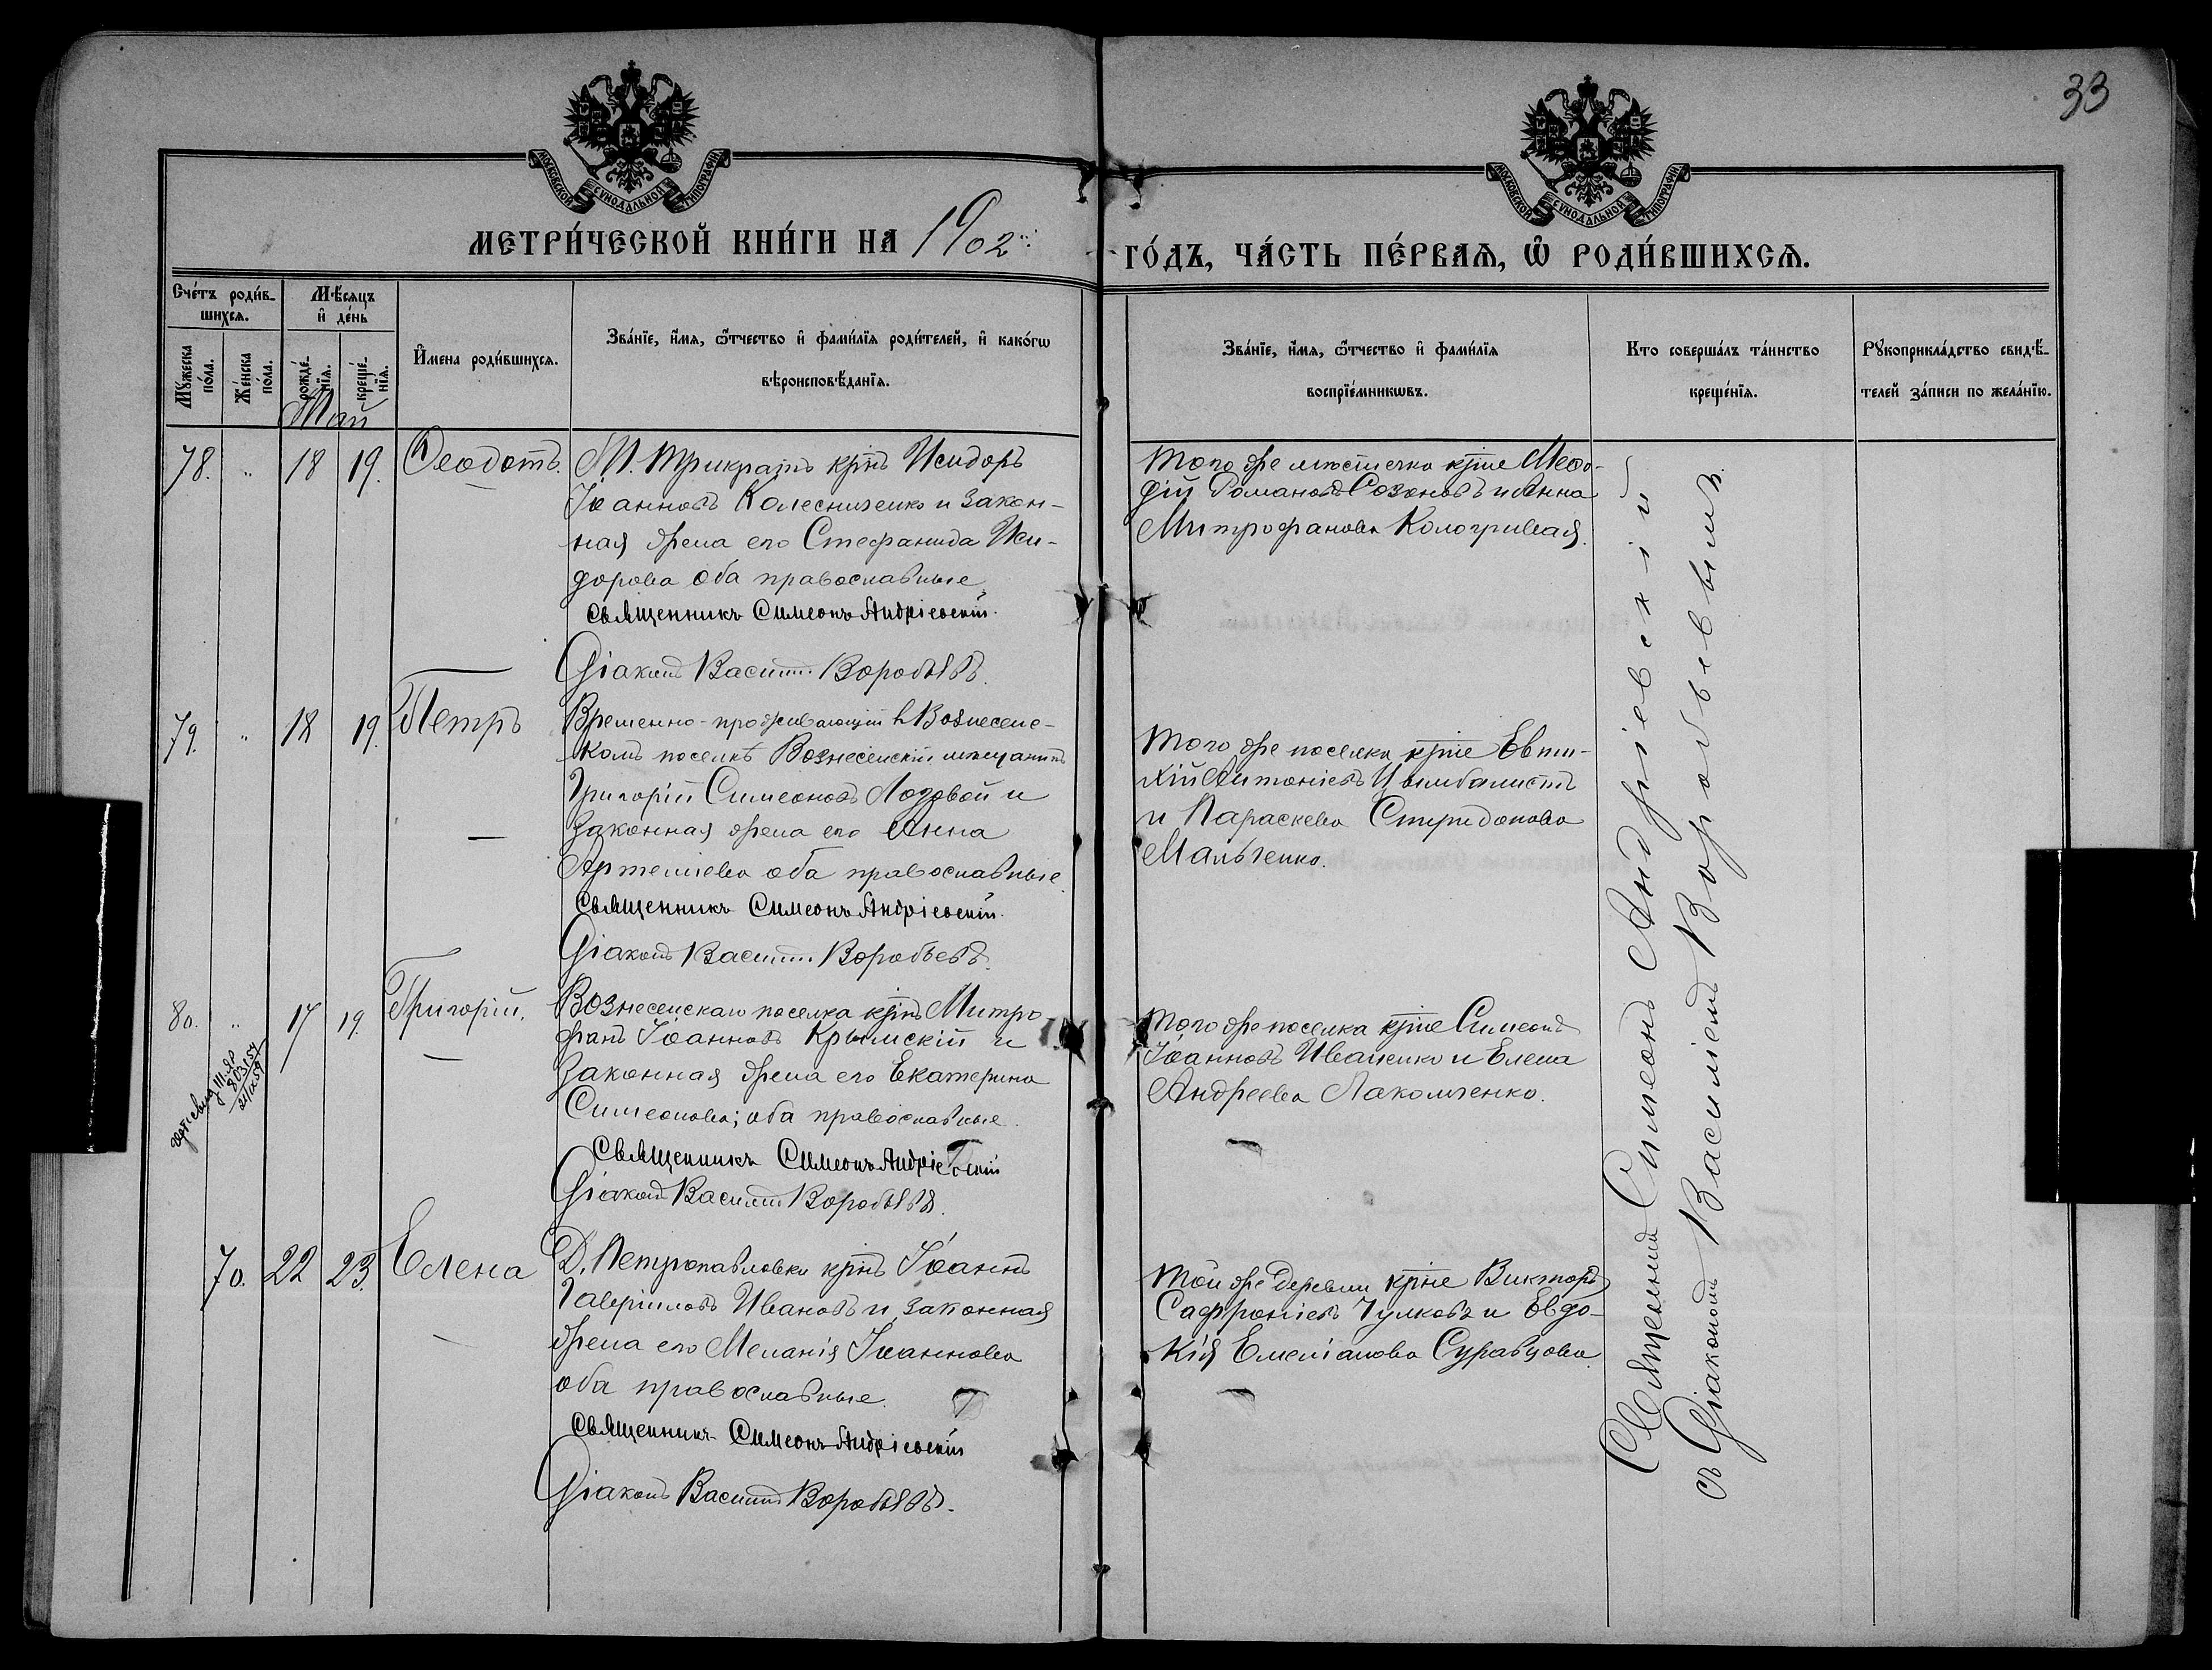 33
МОСКОВСКОЙ СѴНОДАЛЬНОЙ ТИПОГРАФІИ
МОСКОВСКОЙ СѴНОДАЛЬНОЙ ТИПОГРАФІИ
МЕТРИ́ЧЕСКОЙ КНИ́ГИ НА 1902
ГО́ДЪ, ЧА́СТЬ ПЕ́РВАѦ, Ѽ РОДИ́ВШИХСѦ.
Сче́тъ роди́в-
шихсѧ.
Мѣ́сѧцъ
и҆ де́нь
Мꙋ́жеска
по́ла.
Же́нска
по́ла.
рожде́-
нїѧ.
креще́-
нїѧ.
И҆мена роди́вшихсѧ.
Зва́нїе, и҆́мѧ, ѻ҆́тчество и҆ фами́лїѧ роди́телей, и҆ како́гѡ
вѣроисповѣ́данїѧ.
Зва́нїе, и҆́мѧ, ѻ҆́тчество и҆ фами́лїѧ
воспрїе́мникѡвъ.
Кто соверша́лъ та́инство
креще́нїѧ.
Рꙋкоприкла́дство свидѣ́-
телей за́писи по жела́нїю.
Май
78. " 18 19. Ѳеодотъ.
М. Трикратъ крнъ Исидоръ
Іоанновъ Колесниченко и закон-
ная жена его Стефанида Иси-
дорова оба православные
Священникъ Симеонъ Андріевскій.
Діаконъ Василій Воробьевъ.
Того же местечка крне Меѳо-
дій Романовъ Созоновъ и Анна
Митрофанова Кологривая.
79. " 18 19. Петръ
Временно-проживающій в Вознесенс-
комъ поселкѣ Вознесенскій мѣщанинъ
Григорій Симеоновъ Лодовой и
законная жена его Анна
Артеміева оба православные
Священникъ Симеонъ Андріевскій.
Діаконъ Василій Воробьевъ.
Того же поселка крне Евти-
хій Антоніевъ Цымбалистъ
и Параскева Спиридонова
Мальченко.
80. " 17 19. Григорій.
Вознесенскаго поселка крнъ Митро
фанъ Іоанновъ Крымскій и
законная жена его Екатерина
Симеонова; оба православные.
Священникъ Симеонъ Андріевскій
Діаконъ Василій Воробьевъ.
Того же поселка крне Симеонъ
Іоанновъ Иваненко и Елена
Андреева Лакомченко.
70. 22 23. Елена
Д. Петропавловки крнъ Іоаннъ
Гавриіловъ Ивановъ и законная
жена его Меланія Іоаннова
оба православные.
Священникъ Симеонъ Андріевскій
Діаконъ Василій Воробьевъ.
Той же деревни крне Викторъ
Сафроніевъ Чулковъ и Евдо-
кія Емеліанова Суравцова.
Священникъ Симеонъ Андріевскій
съ Діакономъ Василіемъ Воробьевымъ.